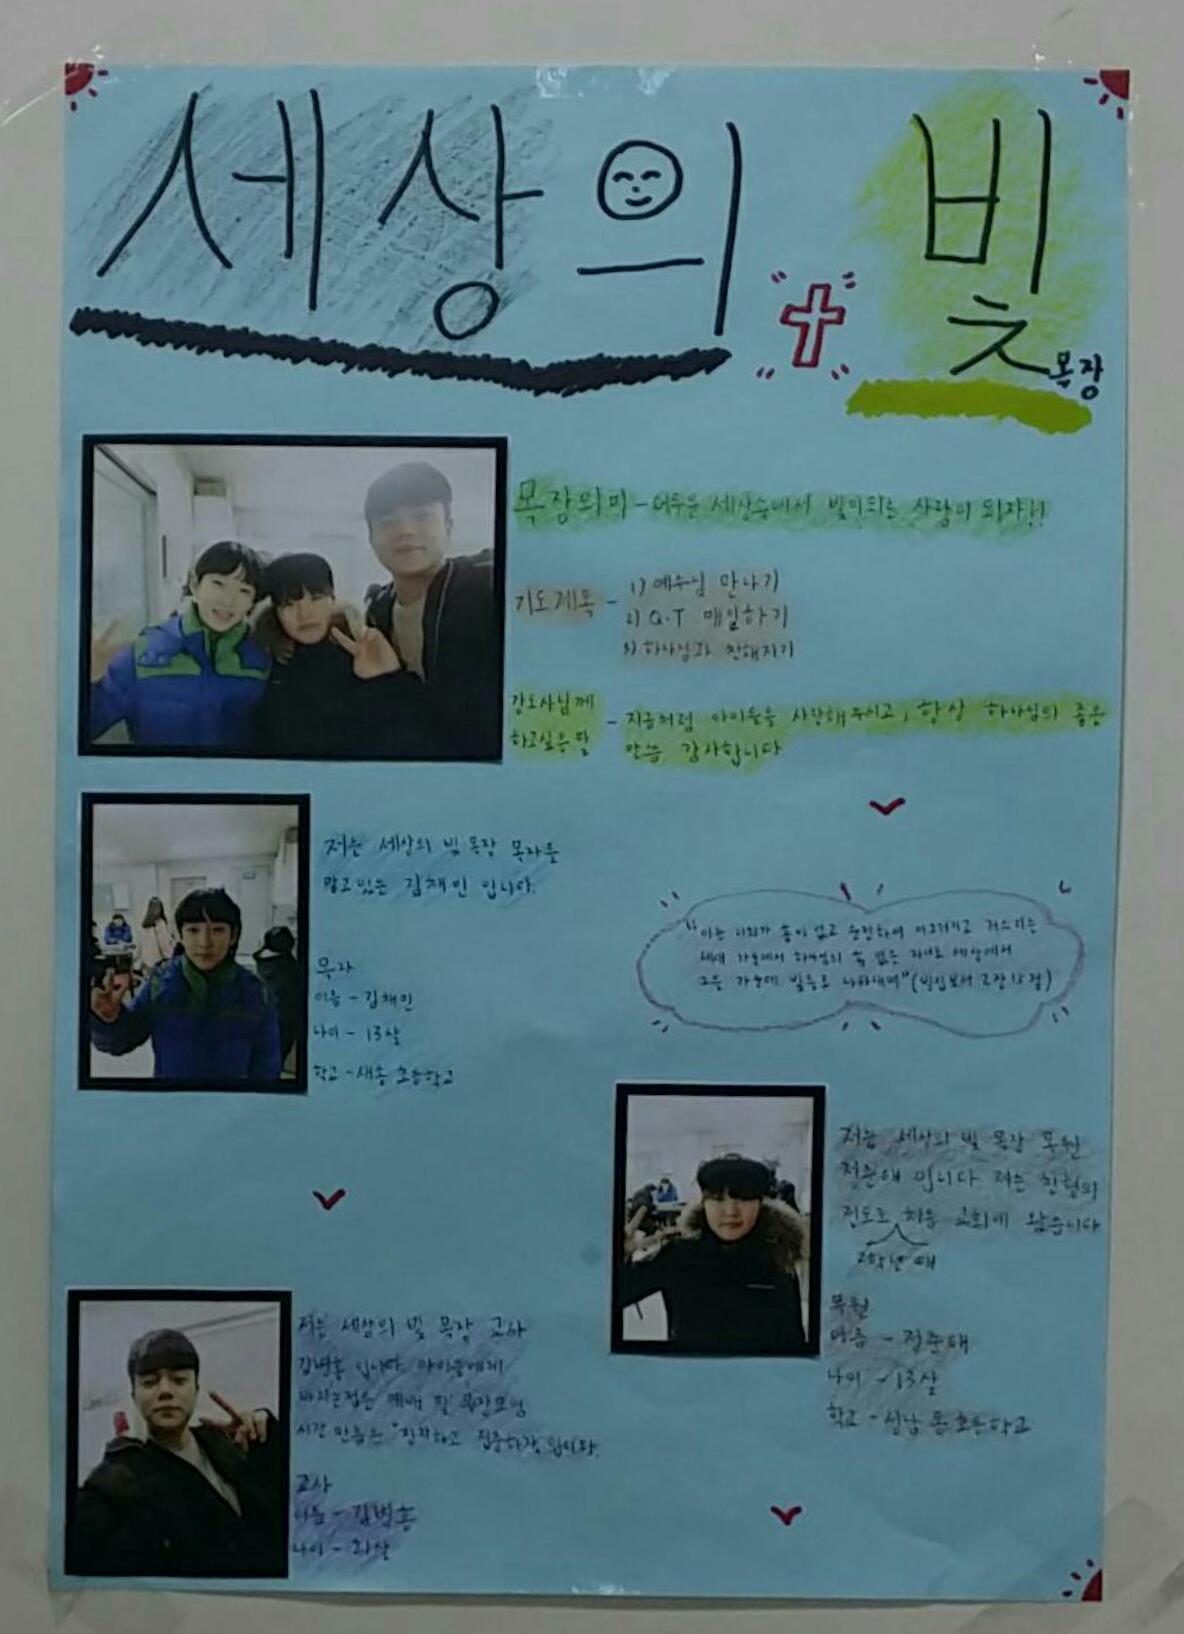 세상의 빛
목장
목장의미 - 어두운 세상속에서 빛이되는 사람이 되자!!
기도제목 - 1) 예수님 만나기
2) Q.T 매일하기
3) 하나님과 친해지기
강도사님께
하고싶은 말 - 지금처럼 아이들을 사랑해주시고, 항상 하나님의 좋은
말씀 감사합니다
저는 세상의 빛 목장 목자를
맡고있는 김채민 입니다.
목자
이름 - 김채민
나이 - 13살
학교 - 새송 초등학교
"이는 너희가 흠이 없고 순전하여 어그러지고 거스르는
세대 가운데서 하나님의 흠 없는 자녀로 세상에서
그들 가운데 빛들로 나타내며" (빌립보서 2장 15절)
저는 세상의 빛 목장 목원
전준태 입니다 저는 친형의
전도로 처음 교회에 왔습니다
2학년 때
목원
이름 - 전준태
나이 - 13살
학교 - 성남 동 초등학교
저는 세상의 빛 목장 교사
김범홍 입니다. 아이들에게
바라는점은 예배 및 목장모임
시간 만큼은 "진지하고 집중하자" 입니다.
교사
이름 - 김범홍
나이 - 21살